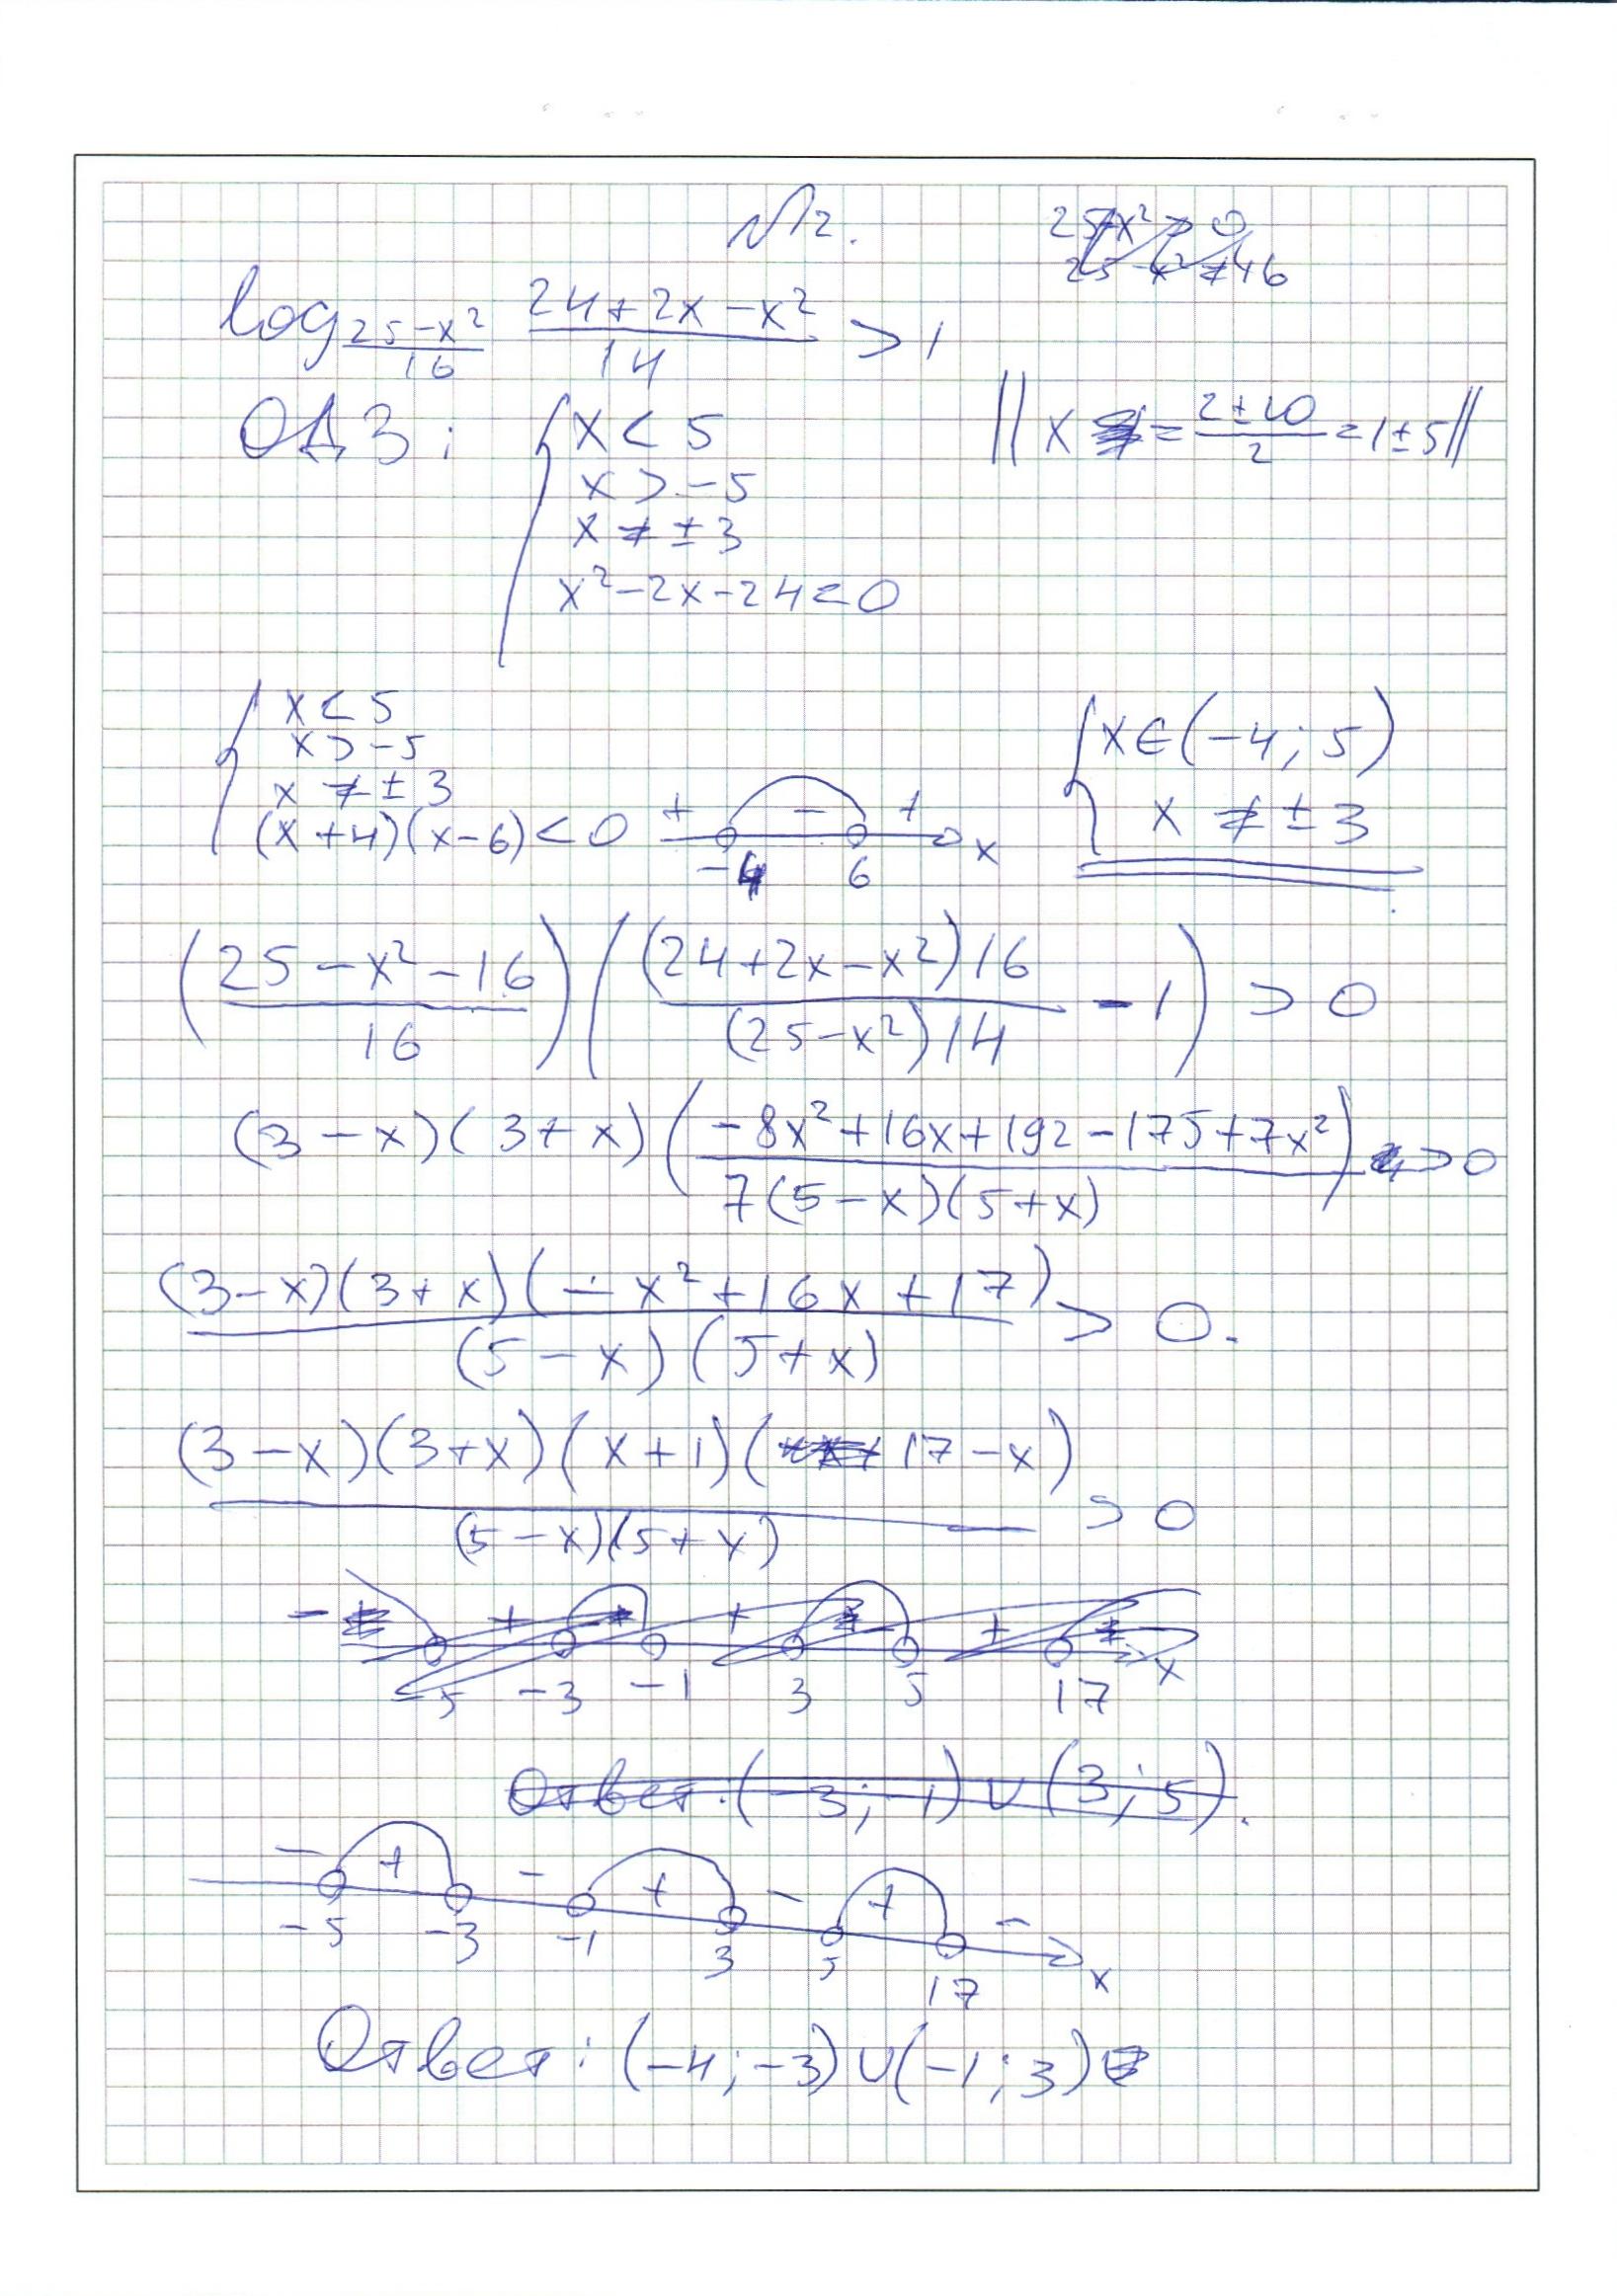 №12.
25-x² > 0
25-x² ≠ 16
log_{(25-x²)/16} (24+2x-x²)/14 > 1
ОДЗ: { x < 5
x > -5
x ≠ ± 3
x²-2x-24<0
|| x = (2±10)/2 = 1±5 ||
{ x < 5
x > -5
x ≠ ± 3
(x+4)(x-6)<0 + - + x
-4 6
{ x∈(-4; 5)
x ≠ ± 3
((25-x²-16)/16) ((24+2x-x²)16/((25-x²)14) - 1) > 0
(3-x)(3+x) ((-8x²+16x+192-175+7x²)/(7(5-x)(5+x))) > 0
(3-x)(3+x)(-x²+16x+17)/((5-x)(5+x)) > 0.
(3-x)(3+x)(x+1)(17-x)/((5-x)(5+x)) > 0
- + + + x
-5 -3 -1 3 5 17
Ответ: (-3; -1) ∪ (3; 5).
- + - + - + - x
-5 -3 -1 3 5 17
Ответ: (-4; -3) ∪ (-1; 3)